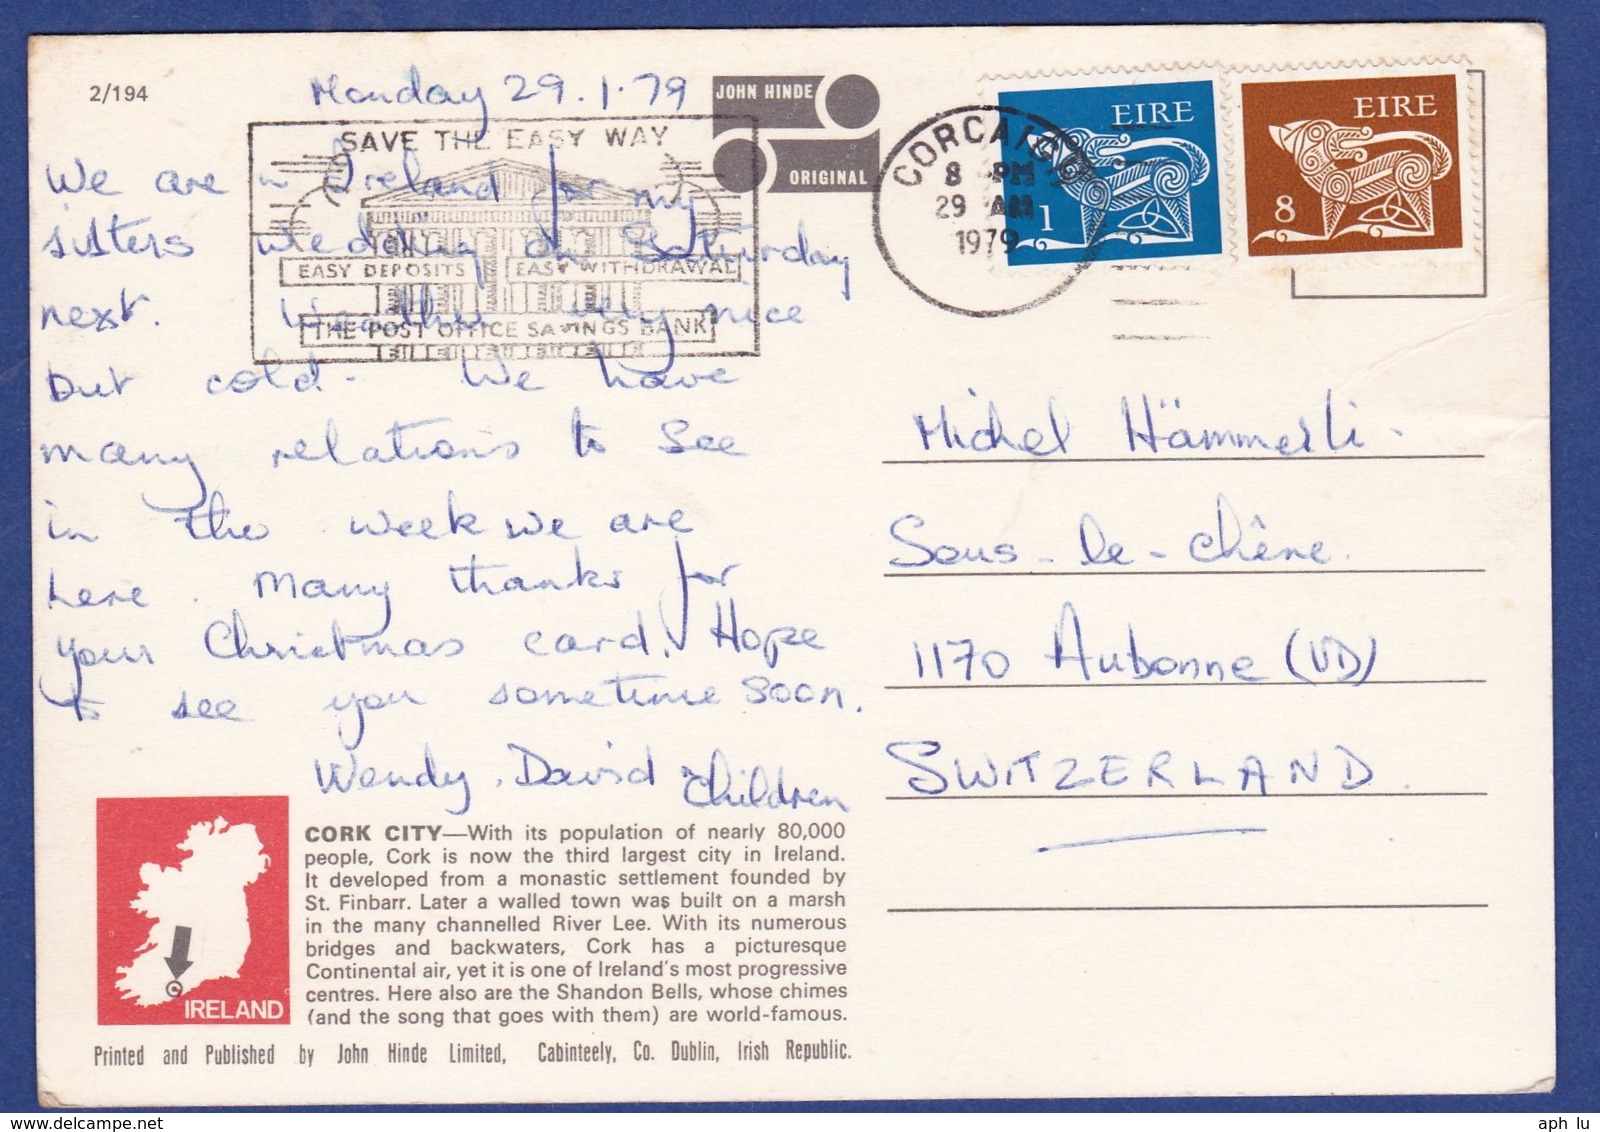 2/194
Monday 29.1.79
JOHN HINDE
ORIGINAL
SAVE THE EASY WAY
EASY DEPOSITS
EASY WITHDRAWAL
THE POST OFFICE SAVINGS BANK
CORCAIGH
8 PM
29 AM
1979
EIRE
1
EIRE
8
We are in Ireland for my
sisters wedding on Saturday
next. Weather very nice
but cold. We have
many relations to see
in the week we are
here. Many thanks for
your Christmas card. Hope
to see you sometime soon.
Wendy, David & Children
Michel Hämmerli.
Sous-le-Chêne.
1170 Aubonne (VD)
SWITZERLAND.
IRELAND
CORK CITY—With its population of nearly 80,000
people, Cork is now the third largest city in Ireland.
It developed from a monastic settlement founded by
St. Finbarr. Later a walled town was built on a marsh
in the many channelled River Lee. With its numerous
bridges and backwaters, Cork has a picturesque
Continental air, yet it is one of Ireland's most progressive
centres. Here also are the Shandon Bells, whose chimes
(and the song that goes with them) are world-famous.
Printed and Published by John Hinde Limited, Cabinteely, Co. Dublin, Irish Republic.
aph lu